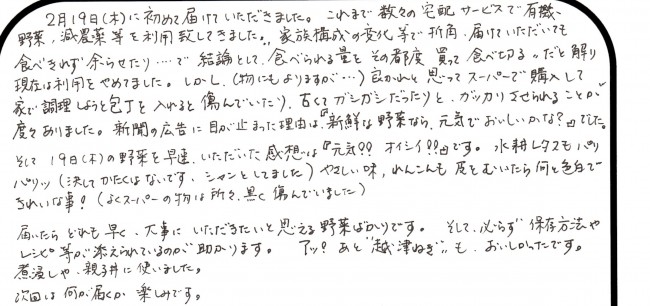 2月19日(木)に初めて届けていただきました。これまで数々の宅配サービスで有機
野菜、減農薬等を利用致してきました。家族構成の変化等で折角届けていただいても
食べきれず余らせたり‥‥で結論として、食べられる量をその都度買って食べ切る〃だと解り
現在は利用をやめてました。しかし、(物にもよりますが…)良かれと思ってスーパーで購入して
家で調理しようと包丁を入れると傷んでいたり、古くてガシガシだったりと、ガッカリさせられることが
度々ありました。新聞の広告に目が止まった理由は、『新鮮な野菜なら、元気でおいしいかな?』でした。
そして19日(木)の野菜を早速、いただいた感想は『元気!! オイシイ!!』です。水耕レタスもパリ
パリッ(決してかたくはないです、シャンとしてました)やさしい味、れんこんも皮をむいたら何と色白で
きれいな事!(よくスーパーの物は所々、黒く傷んでいました)
届いたらどれも早く、大事にいただきたいと思える野菜ばかりです。そして、必らず保存方法や
レシピ等が添えられているのが助かります。アッ!あと"越津ねぎ"も、おいしかったです。
煮浸しや、親子丼に使いました。
次回は何が届くか楽しみです。